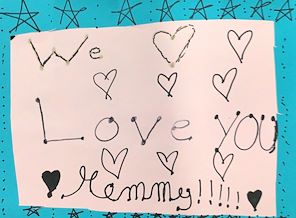 We
Love you
Mommy!!!!!